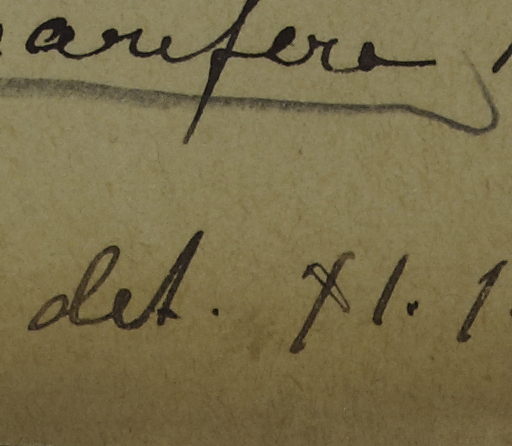 arifera
det. XI. 1.